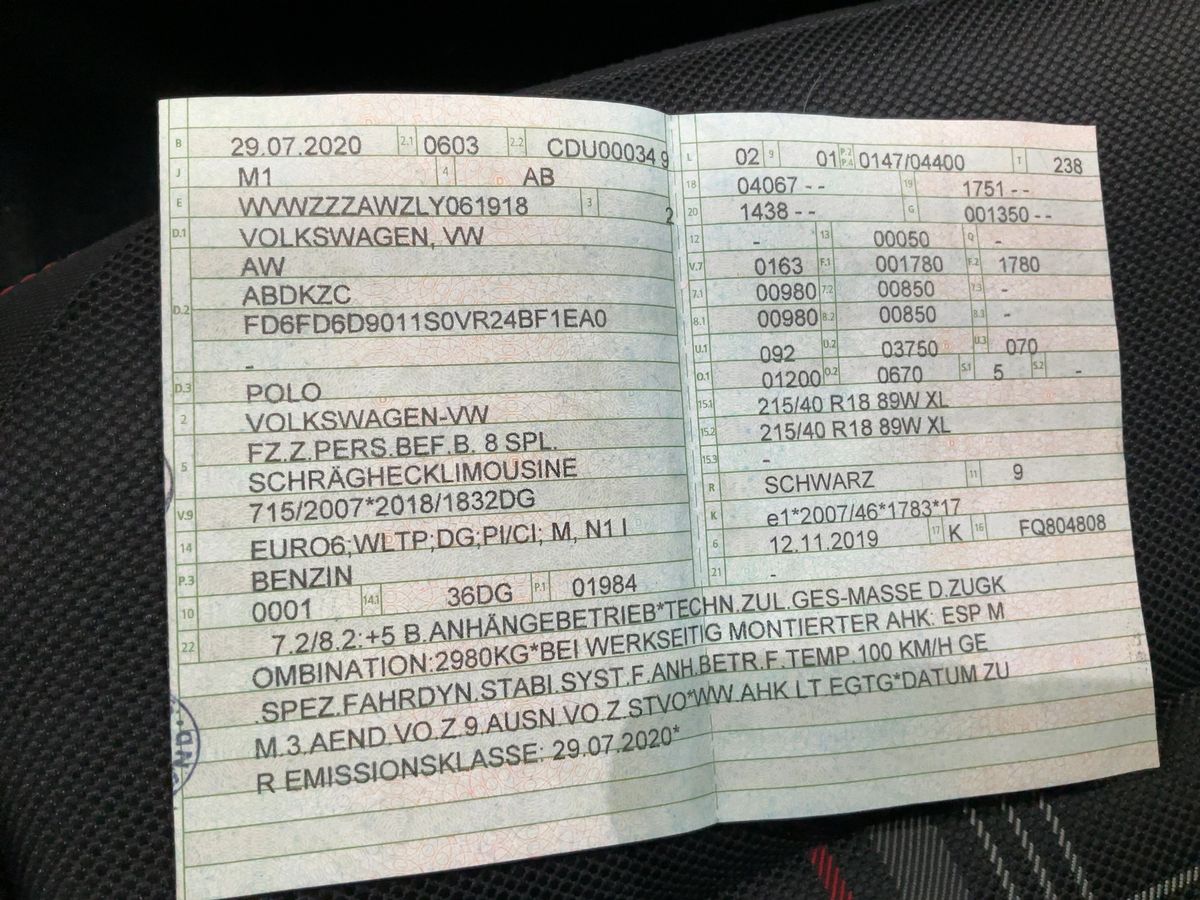 B 29.07.2020 2.1 0603 2.2 CDU00034 9
J M1 4 AB
E WVWZZZAWZLY061918 3 2
D.1 VOLKSWAGEN, VW
AW
D.2 ABDKZC
FD6FD6D9011S0VR24BF1EA0
-
D.3 POLO
2 VOLKSWAGEN-VW
5 FZ.Z.PERS.BEF.B. 8 SPL.
SCHRÄGHECKLIMOUSINE
V.9 715/2007*2018/1832DG
14 EURO6;WLTP;DG;PI/CI; M, N1 I
P.3 BENZIN
10 0001 14.1 36DG P.1 01984
L 02 9 01 P.2 P.4 0147/04400 T 238
18 04067 - - 19 1751 - -
20 1438 - - G 001350 - -
12 - 13 00050 Q -
V.7 0163 F.1 001780 F.2 1780
7.1 00980 7.2 00850 7.3 -
8.1 00980 8.2 00850 8.3 -
U.1 092 U.2 03750 U.3 070
O.1 01200 O.2 0670 S.1 5 S.2 -
15.1 215/40 R18 89W XL
15.2 215/40 R18 89W XL
15.3 -
R SCHWARZ 11 9
K e1*2007/46*1783*17
6 12.11.2019 17 K 16 FQ804808
21 -
22 7.2/8.2:+5 B.ANHÄNGEBETRIEB*TECHN.ZUL.GES-MASSE D.ZUGK
OMBINATION:2980KG*BEI WERKSEITIG MONTIERTER AHK: ESP M
.SPEZ.FAHRDYN.STABI.SYST.F.ANH.BETR.F.TEMP.100 KM/H GE
M.3.AEND.VO.Z.9.AUSN.VO.Z.STVO*WW.AHK LT.EGTG*DATUM ZU
R EMISSIONSKLASSE: 29.07.2020*